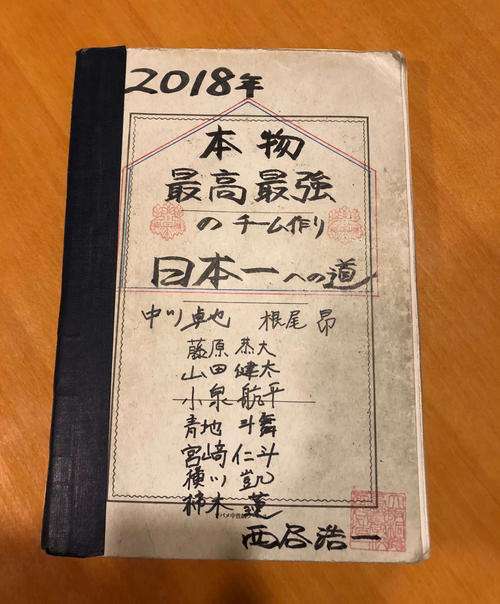 2018年
本物
最高最強
のチーム作り
日本一への道
中川卓也 根尾昂
藤原恭大
山田健太
小泉航平
青地斗舞
宮崎仁斗
横川凱
柿木蓮
西谷浩一